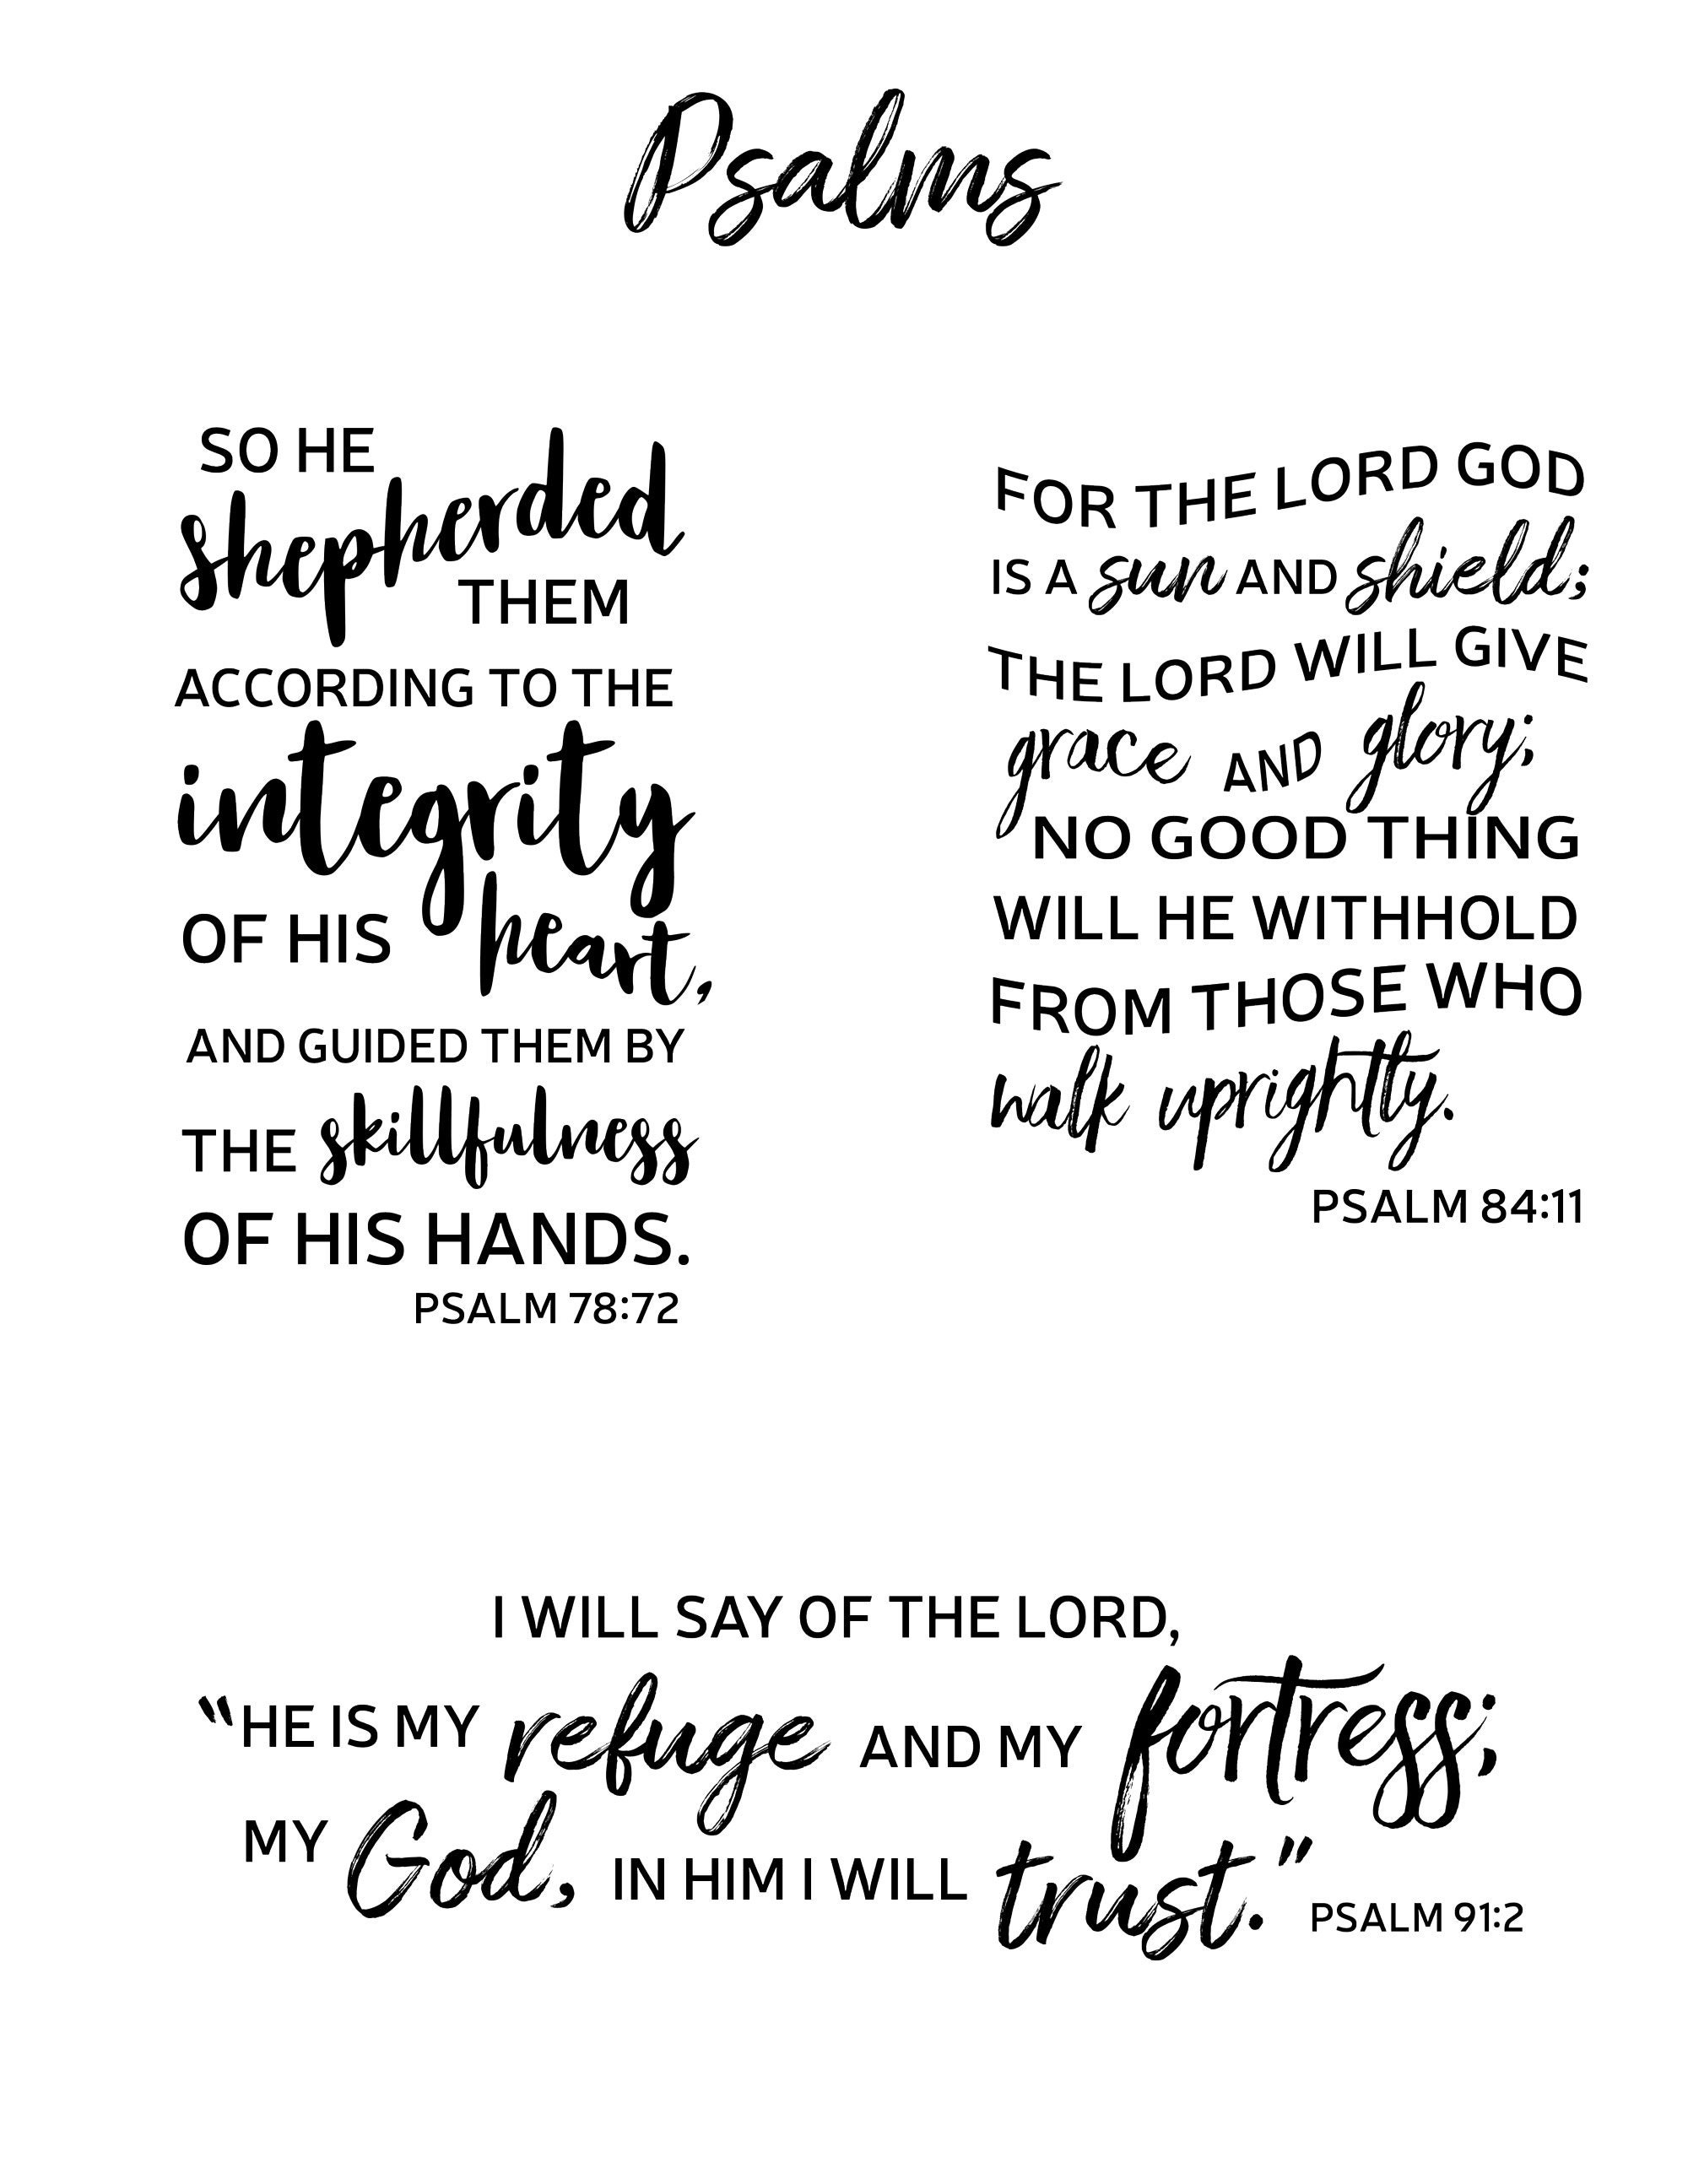 Psalms
SO HE
shepherded
THEM
ACCORDING TO THE
integrity
OF HIS heart,
AND GUIDED THEM BY
THE skillfulness
OF HIS HANDS.
PSALM 78:72
FOR THE LORD GOD
IS A sun AND shield;
THE LORD WILL GIVE
grace AND glory;
NO GOOD THING
WILL HE WITHHOLD
FROM THOSE WHO
walk uprightly.
PSALM 84:11
I WILL SAY OF THE LORD,
“HE IS MY refuge AND MY fortress;
MY God, IN HIM I WILL trust.” PSALM 91:2